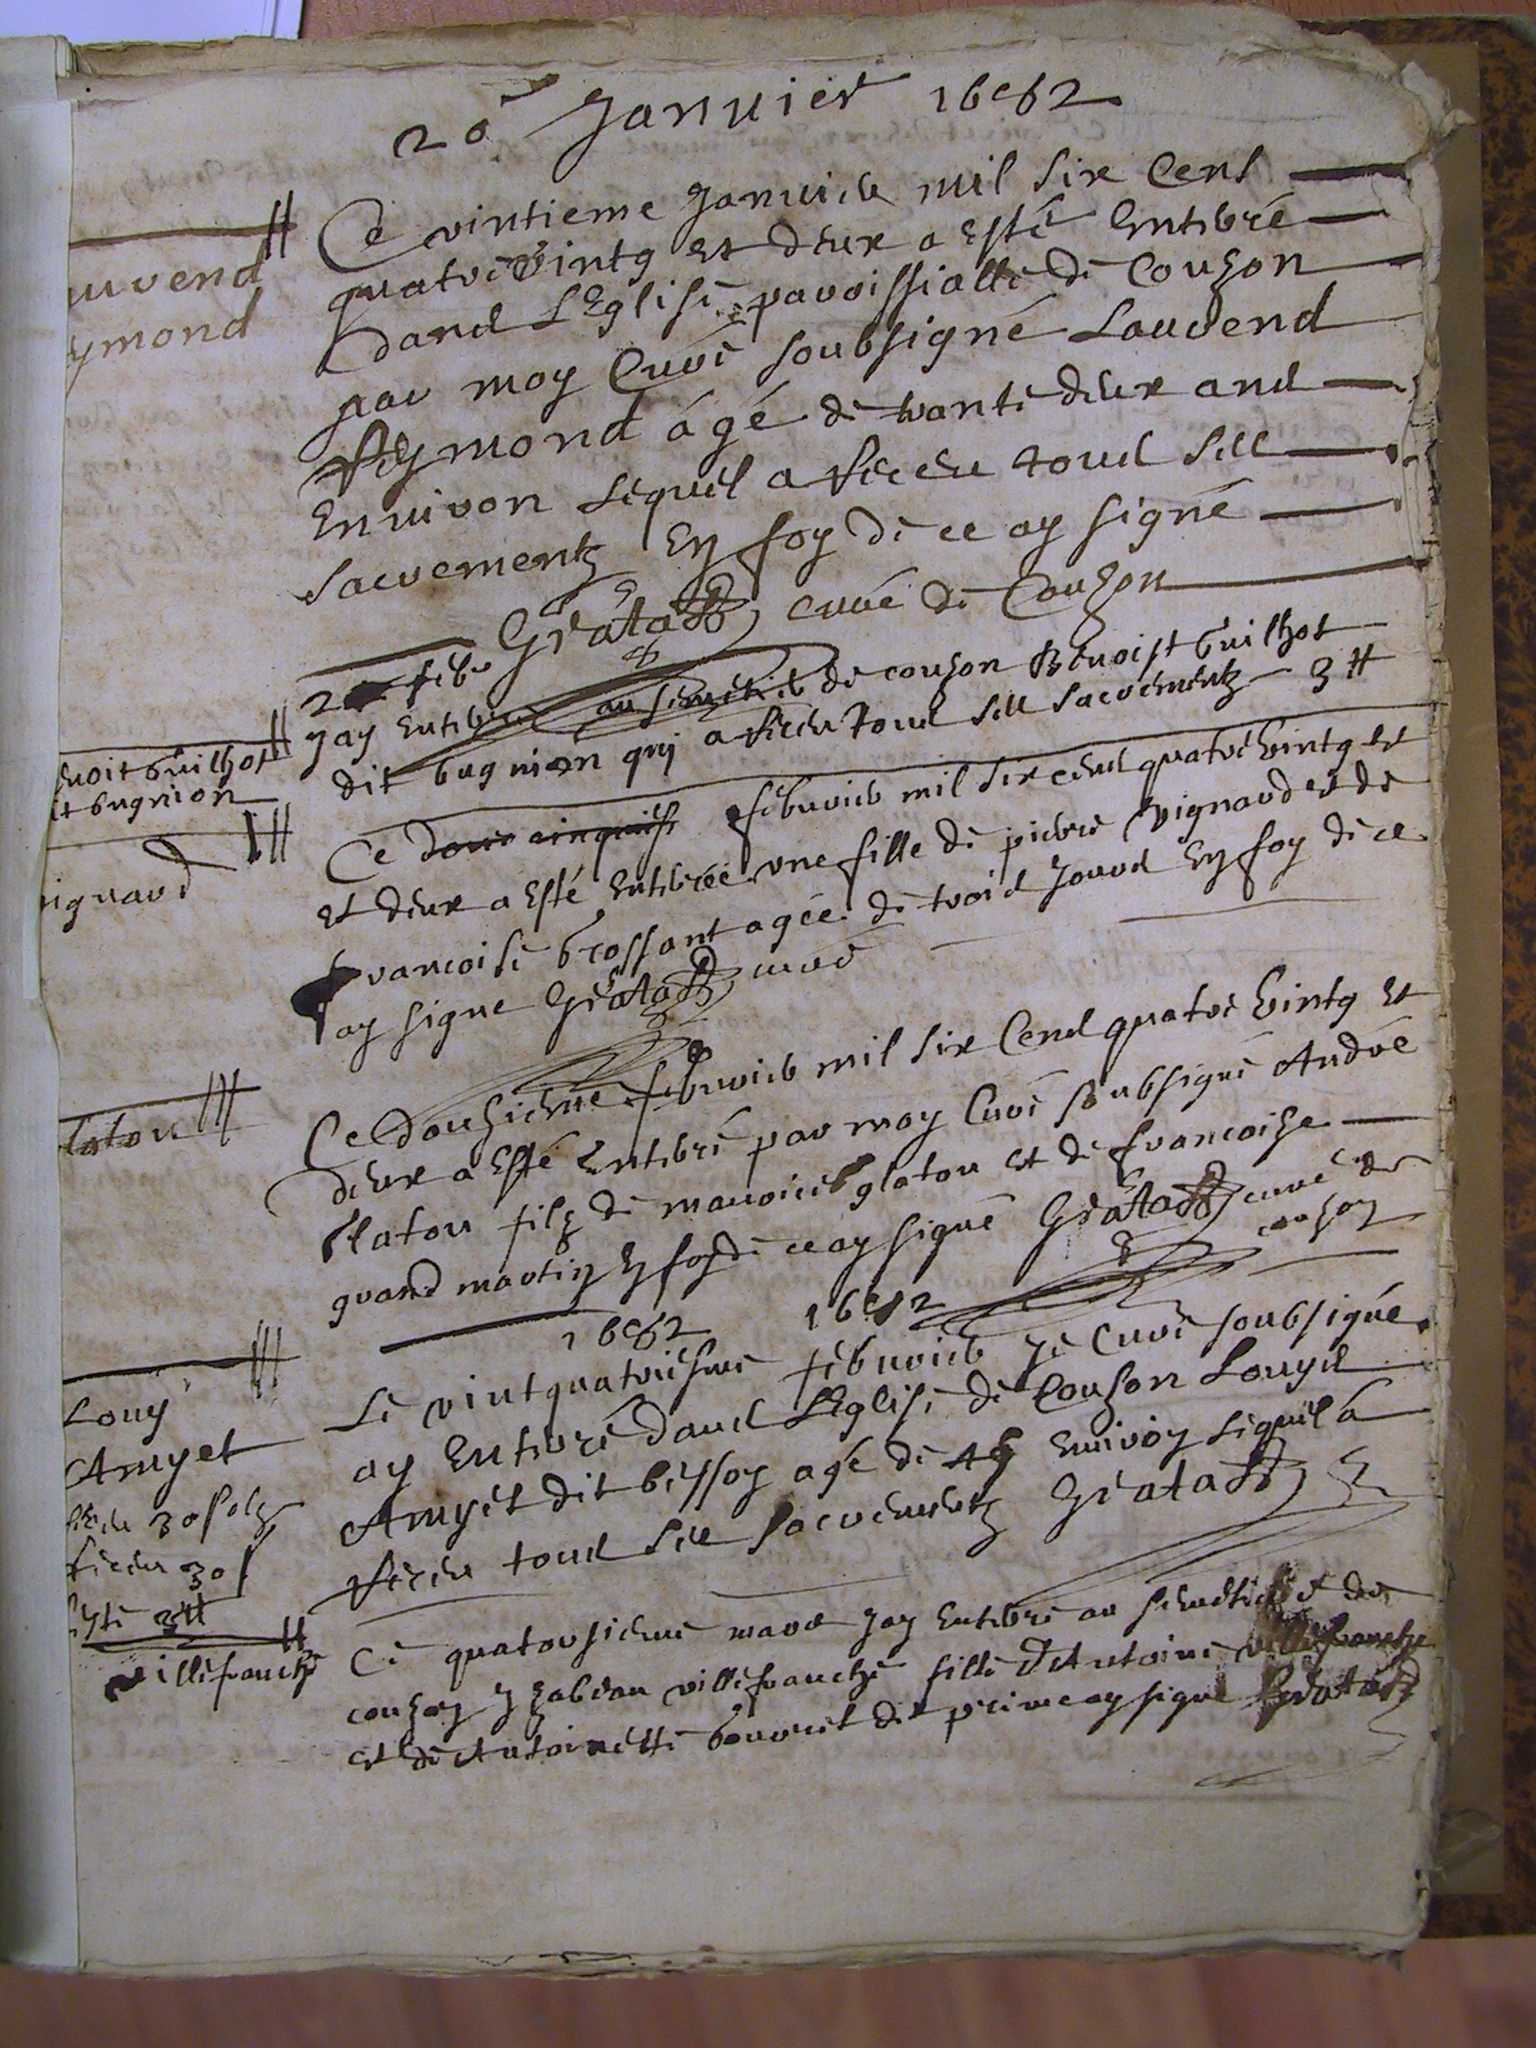 20 Janvier 1682
Ce vintieme Janvier mil six Cens
quatre vintg et deux a esté Enterré
dans L'Eglise paroissialle de Couzon
par moy Curé soubsigné Laurend
Reymond ágé de trante deux ans
Environ Lequel a Receu tous ses
sacrementz En foy de ce ay signé
Gratatt curé de Couzon
uvend
ymond
2 febr
Jay Enterré au semetier de couzon Benoist Guilhot
dit bugnion qui a Receu tous ses sacrementz 3 tt
enoit Guilhot
it bugnion
Ce febvrier mil six cens quatre vintg et
et deux a esté Enterrée une fille de pierre Vignard et de
francoise brossant agée de trois Jours En foy de ce
ay signe Gratatt curé
ignard
Ce douzieme febvrier mil six Cens quatre vintg et
deux a esté Enterré par moy Curé soubsigné André
Glatou filz de mauricé glatou et de francoize
grand martin En foy de ce ay signé Gratatt curé de
couzon
latou
1682 1682
Le vintquatriesme febvrier Je Curé soubsigné
ay Enterré dans L'Eglise de Couzon Louys
Amyet dit beysson agé de Environ Lequel a
Receu tous ses sacrementz Gratatt
Louy
Amyet
Receu 30 solz
Receu 30 s
3 tt
Ce quatorsieme mars Jay Enterré au semetiere de
couzon Yzabeau villefranche fille d'Antoine villefranche
et de Antoinette bouvret dit prime ay signe Gratatt
villefranche